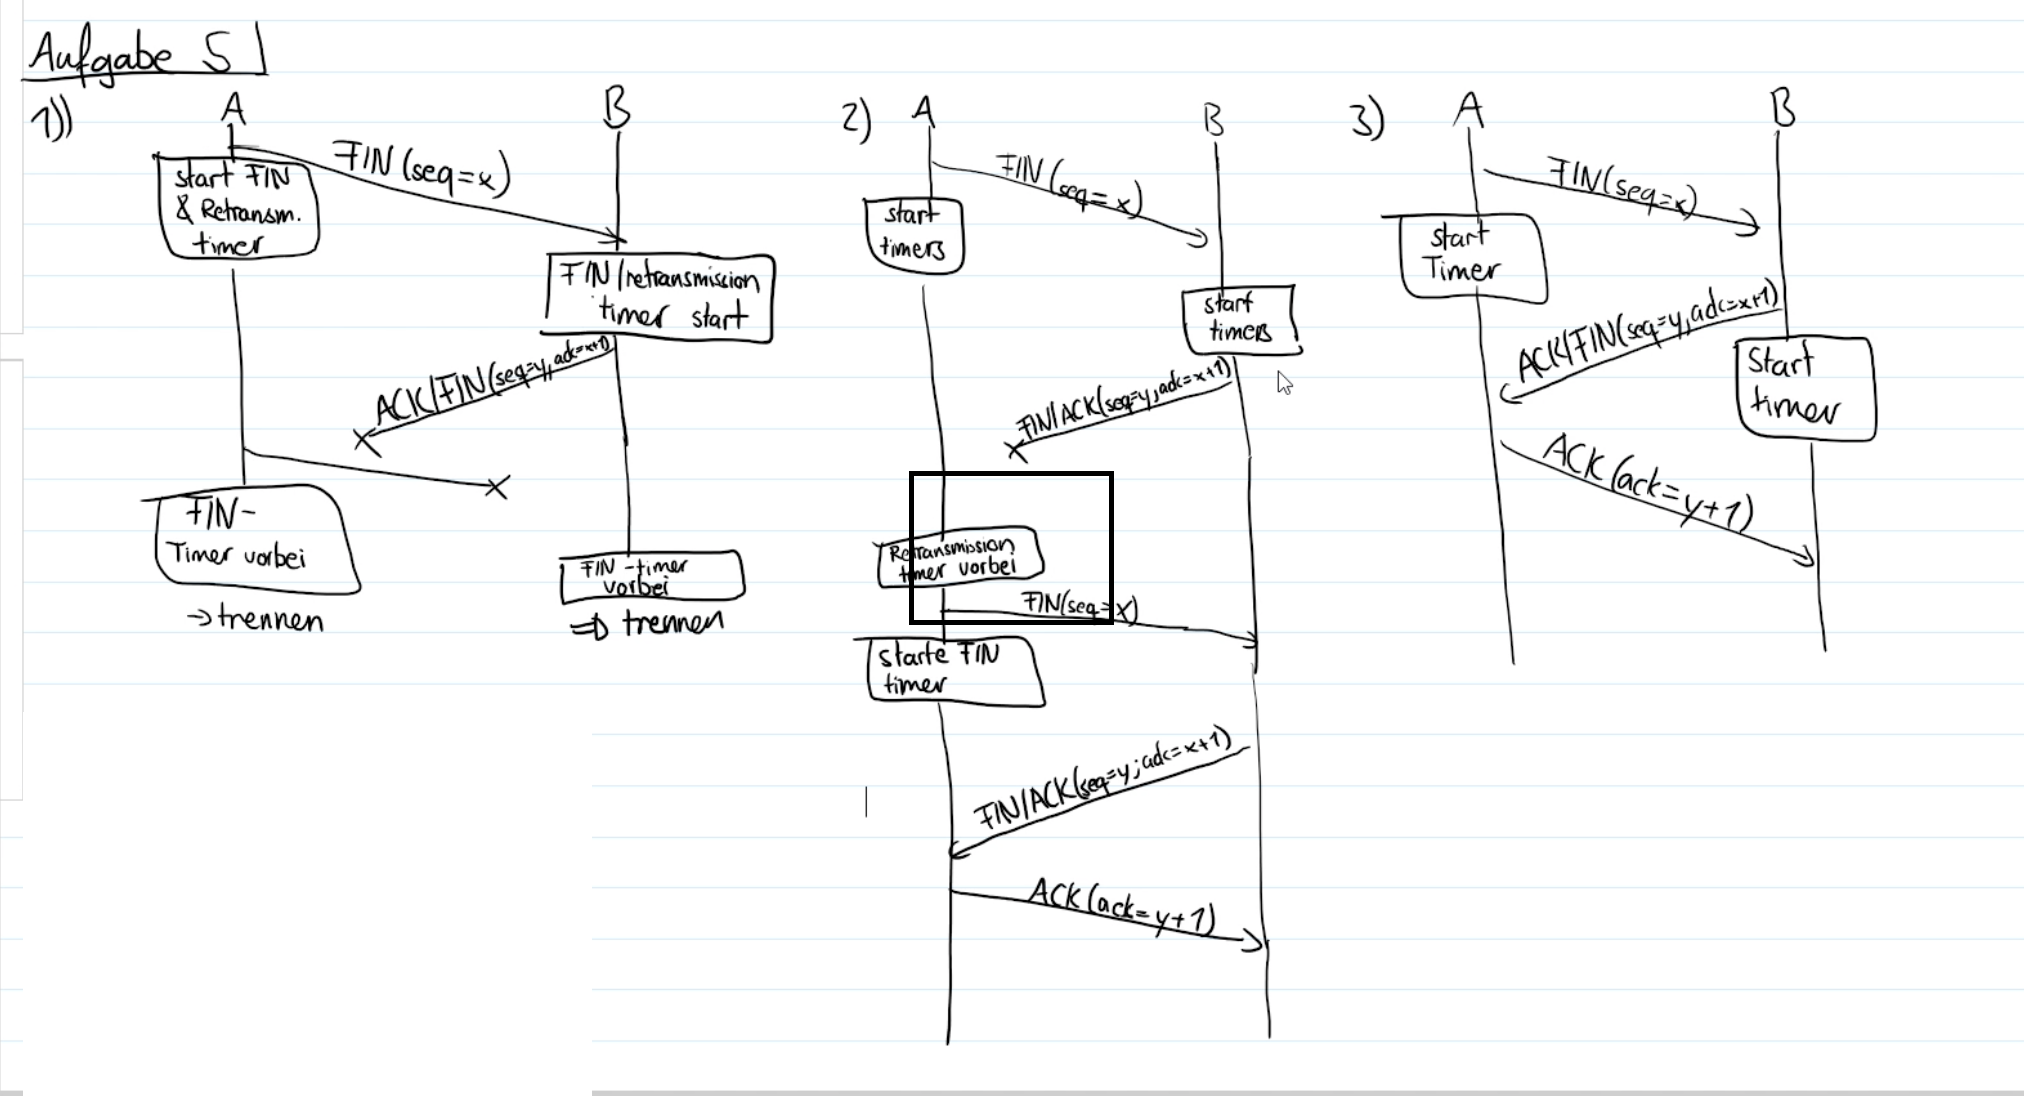 Aufgabe 5
1))
A
B
FIN (seq=x)
start FIN
& Retransm.
timer
FIN/retransmission
timer start
ACK/FIN(seq=y, ack=x+1)
FIN-
Timer vorbei
→ trennen
FIN-timer
vorbei
⇒ trennen
2)
A
B
FIN (seq=x)
start
timers
start
timers
FIN/ACK(seq=y, ack=x+1)
Retransmission
timer vorbei
FIN(seq=x)
starte FIN
timer
FIN/ACK(seq=y; ack=x+1)
ACK (ack=y+1)
3)
A
B
FIN(seq=x)
start
Timer
ACK/FIN(seq=y, ack=x+1)
Start
timer
ACK (ack=y+1)